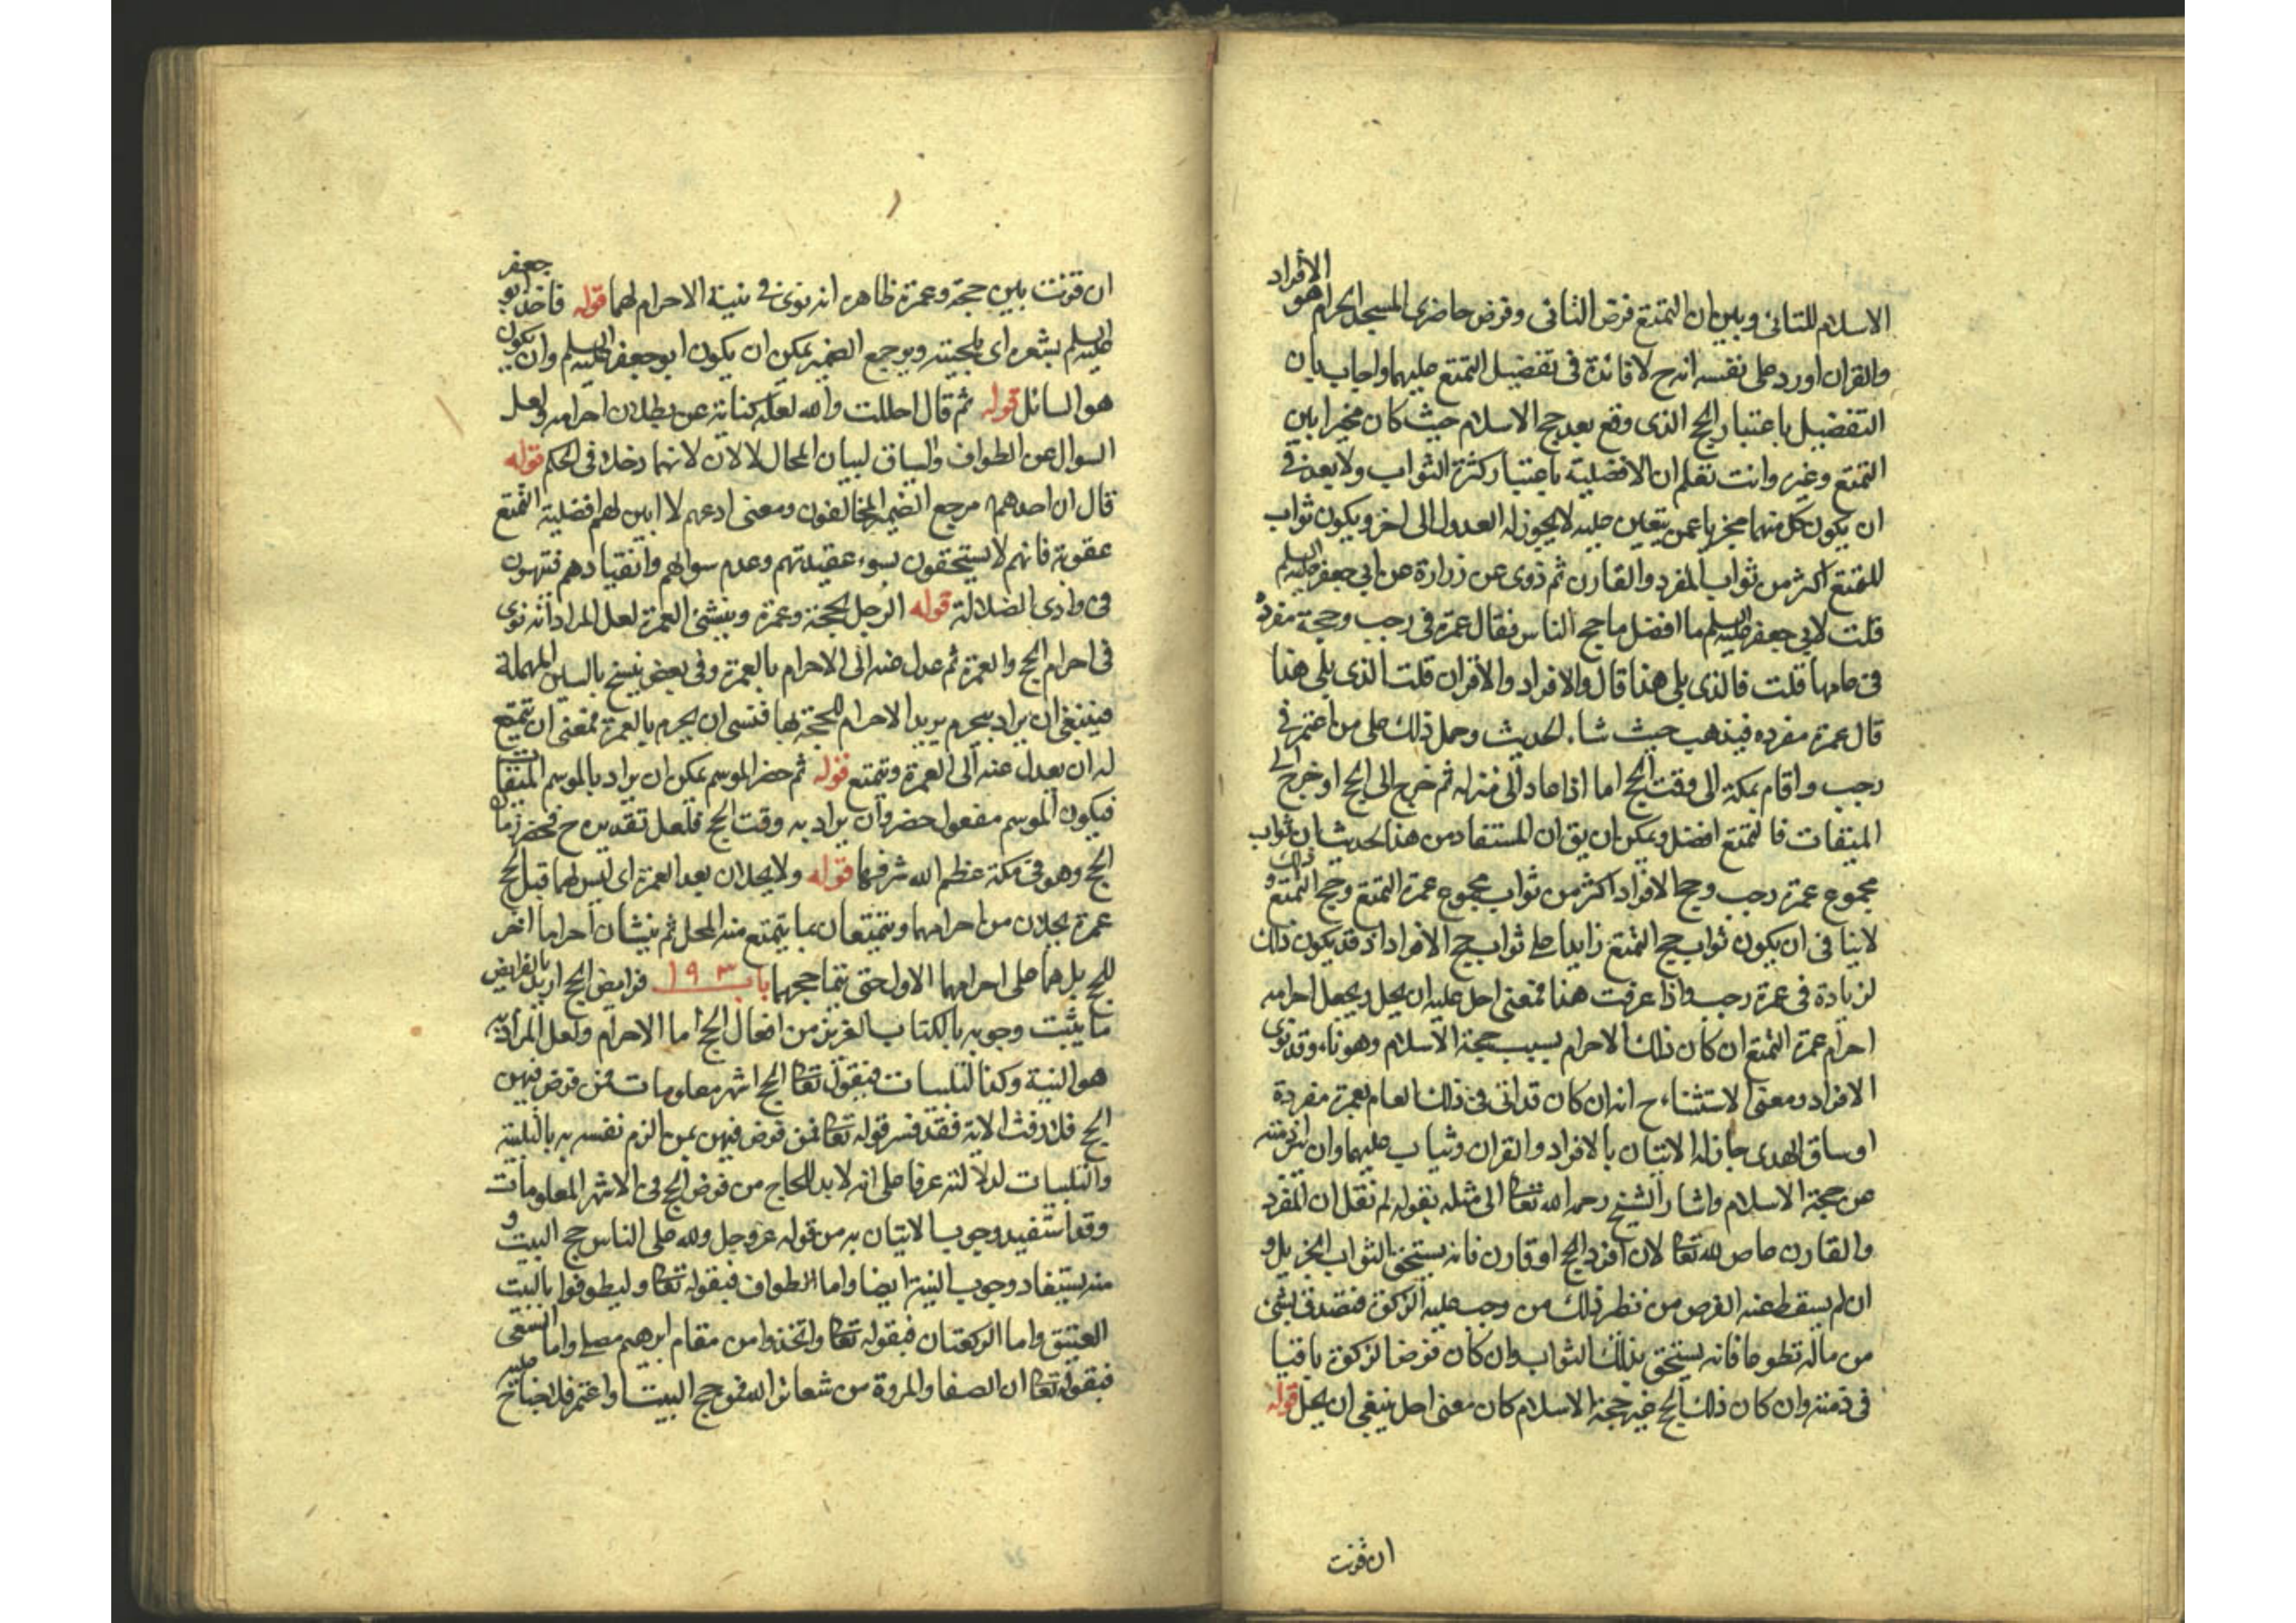 الاسلام للنائى وبين ان التمتع فرض النائى وفرض حاضرى المسجد الحرام هو الافراد
والقران اورد على نفسه انه ح لا فائدة فى تفضيل التمتع عليهما واجاب بان
التفضيل باعتبار الحج الذى وقع بعد حج الاسلام حيث كان مخيرا بين
التمتع وغيره وانت تعلم ان الافضلية باعتبار كثرة الثواب ولا بعد فى
ان يكون كل منهما مجزيا عمن يتعين عليه لا يجوز له العدول الى اخر ويكون ثواب
للتمتع اكثر من ثواب المفرد والقارن ثم روى عن زرارة عن ابى جعفر عليه السلم
قلت لابى جعفر عليه السلم ما افضل ما حج الناس فقال عمرة فى رجب وحجة مفردة
فى عامها قلت فالذى يلى هذا قال والافراد والاقران قلت الذى يلى هذا
قال عمرة مفرده فيذهب حيث شاء الحديث وحمل ذلك على من اعتمر فى
رجب واقام بمكة الى وقت الحج اما اذا عاد الى منزله ثم خرج الى الحج او خرج الى
الميقات فالتمتع افضل ويمكن ان يق ان المستفاد من هذا الحديث ان ثواب
مجموع عمرة رجب وحج الافراد اكثر من ثواب مجموع عمرة التمتع وحج التمتع و ذلك
لا ينافى ان يكون ثواب حج التمتع زايدا على ثواب حج الافراد اذ قد يكون ذلك
لزيادة فى عمرة رجب واذا عرفت هنا فمعنى احل عليه ان يحل ويجعل احرامه
احرام عمرة التمتع ان كان ذلك الاحرام بسبب حجة الاسلام وهو ناء وقد نوى
الافراد ومعنى الاستثناء ح انه ان كان قد اتى فى ذلك العام بعمرة مفردة
او ساق الهدى جاز له الاتيان بالافراد والقران وثياب عليهما وان لم
عن حجة الاسلام واشار الشيخ رحمه الله تعالى الى مثله بقوله لم نقل ان المفرد
والقارن عاص لله تعالى لان افرد الحج او قارن فانه يستحق الثواب الجزيل و
ان لم يسقط عنه الفرض من نظر ذلك من وجب عليه الزكوة فتصدق بشئ
من ماله تطوعا فانه يستحق بذلك الثواب وان كان فرض الزكوة باقيا
فى ذمته وان كان ذلك الحج غير حجة الاسلام كان معنى احل ينبغى ان يحل قوله
ان قرنت
ان قرنت بين حجة وعمرة ظاهره انه نوى فى نية الاحرام لهما قوله فاخذ ابو جعفر
عليه السلم بشعره اى بلحيته ومرجع الضمير يمكن ان يكون ابو جعفر عليه السلم وان يكون
هو السائل قوله ثم قال احللت والله لعله كناية عن بطلان احرامه ولعل
السوال عن الطواف والسياق لبيان المحال لا لان لانهما دخلا فى الحكم قوله
قال ان احدهم مرجع الضمير المخالفون ومعنى ادعهم لا ابين لهم افضلية التمتع
عقوبة فانهم لا يستحقون لسوء عقيدتهم وعدم سوالهم وانقيادهم
فى وادى الضلالة قوله الرجل بحجة وعمرة وينشئ العمرة لعل المراد انه نوى
فى احرام الحج والعمرة ثم عدل عنه الى الاحرام بالعمرة وفى بعض نسخ بالسين المهملة
فينبغى ان يراد بيحرم يريد الاحرام للحجة بها فنسى ان يحرم بالعمرة فمعنى ان يتمتع
له ان يعدل عنه الى العمرة ويتمتع قوله ثم حضر الموسم يمكن ان يراد بالموسم الميقات
فيكون الموسم مفعول حضر وان يراد به وقت الحج فلعل تقديره ح فحضر زمان
الحج وهو فى مكة عظم الله شرفها قوله ولا يحلان بعد العمرة اى ليس لهما قبل الحج
عمرة يحلان من احرامهما ويتمتعان بما يتمتع منه المحل ثم ينشان احراما اخر
للحج بل هما على احرامهما الاول حتى يتما حجهما باب ١٩٣ فرايض الحج اريد بالفرايض
ما يثبت وجوبه بالكتاب العزيز من افعال الحج اما الاحرام ولعل المراد به
هو النية وكذا التلبيات فبقوله تعالى الحج اشهر معلومات فمن فرض فيهن
الحج فلا رفث الاية فقد فسر قوله تعالى فمن فرض فيهن بمن الزم نفسه به بالتلبية
والتلبيات لدلالته عرفا على انه لا بد للحاج من فرض الحج فى الاشهر المعلومات
وقد استفيد وجوب الاتيان به من قوله عز وجل ولله على الناس حج البيت و
منه يستفاد وجوب النية ايضا واما الطواف فبقوله تعالى وليطوفوا بالبيت
العتيق واما الركعتان فبقوله تعالى واتخذوا من مقام ابرهيم مصلى واما السعى
فبقوله تعالى ان الصفا والمروة من شعائر الله فمن حج البيت او اعتمر فلا جناح عليه